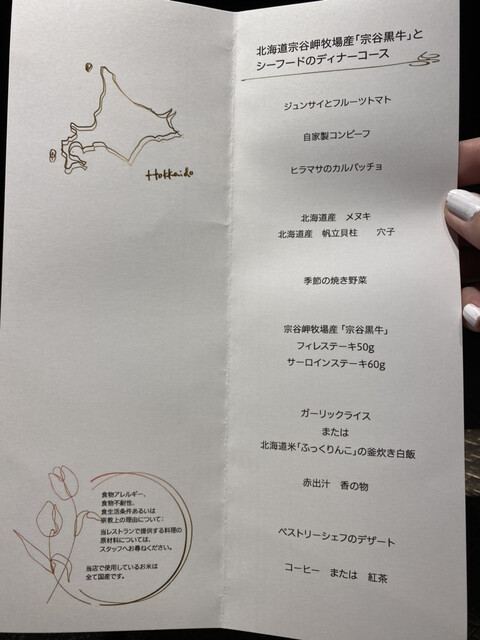 Hokkaido
食物アレルギー、
食物不耐性、
食生活条件あるいは
宗教上の理由について：
当レストランで提供する料理の
原材料については、
スタッフへお尋ねください。
当店で使用しているお米は
全て国産です。
北海道宗谷岬牧場産「宗谷黒牛」と
シーフードのディナーコース
ジュンサイとフルーツトマト
自家製コンビーフ
ヒラマサのカルパッチョ
北海道産　メヌキ
北海道産　帆立貝柱　　穴子
季節の焼き野菜
宗谷岬牧場産「宗谷黒牛」
フィレステーキ50g
サーロインステーキ60g
ガーリックライス
または
北海道米「ふっくりんこ」の釜炊き白飯
赤出汁　香の物
ペストリーシェフのデザート
コーヒー　または　紅茶